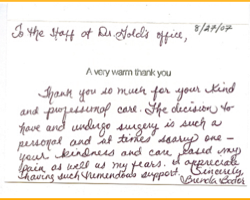 To the Staff of Dr. Gold's office, 8/27/07
A very warm thank you
Thank you so much for your kind
and professional care. The decision to
have and undergo surgery is such a
personal and at times scary one –
your kindness and care eased my
pain as well as my fears. I appreciate
having such tremendous support. Sincerely,
Brenda